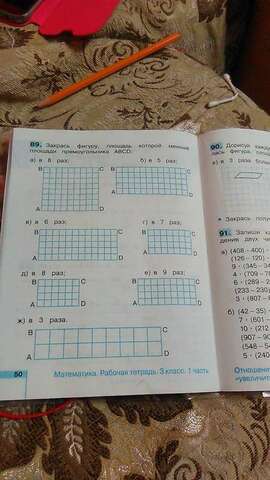 89. Закрась фигуру, площадь которой меньше
площади прямоугольника ABCD:
а) в 8 раз;
б) в 5 раз;
B C
B C
A D
A D
в) в 6 раз;
г) в 7 раз;
B C
B C
A D
A D
д) в 8 раз;
е) в 9 раз;
B C
B C
A D
A D
ж) в 3 раза.
B C
A D
50 Математика. Рабочая тетрадь. 3 класс. 1 часть
90. Дорисуй
площа
а) в 3 раза
Закрась
91. Запиши
дения двух
а) (408 – 400)
(126 – 120)
9 · (345 – 34
(709 –
6 · (289 – 2
(233 – 230)
3 · (307 –
б) (42 – 35)
7 · (601 –
10 · (212
(907 – 90
(548 – 54
5 · (240
Отношени
«увеличит